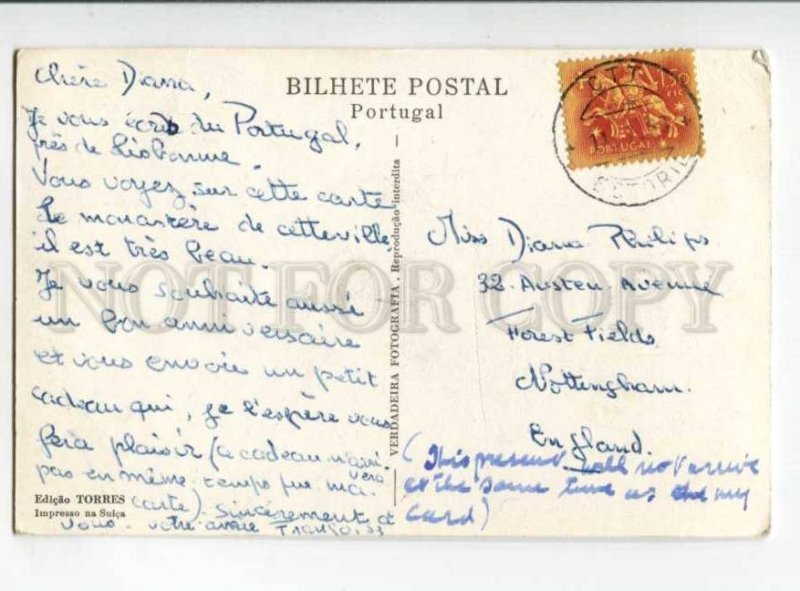 Chère Diana,
Je vous écris du Portugal,
près de Lisbonne.
Vous voyez sur cette carte
le monastère de cette ville,
il est très beau.
Je vous souhaite aussi
un bon anniversaire
et vous envoie un petit
cadeau qui, je l'espère vous
fera plaisir (ce cadeau n'arri-
vera
pas en même temps que ma
carte). Sincèrement à
vous. votre amie Françoise
Edição TORRES
Impresso na Suiça
BILHETE POSTAL
Portugal
VERDADEIRA FOTOGRAFIA . Reprodução interdita
CTT
ESTORIL
1$50
PORTUGAL
Miss Diana Philips
32. Austen. Avenue
Forest Fields.
Nottingham.
England.
(This present will not arrive
at the same time as my
card)
NOT FOR COPY